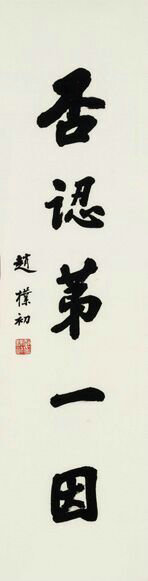 否認第一因
趙樸初